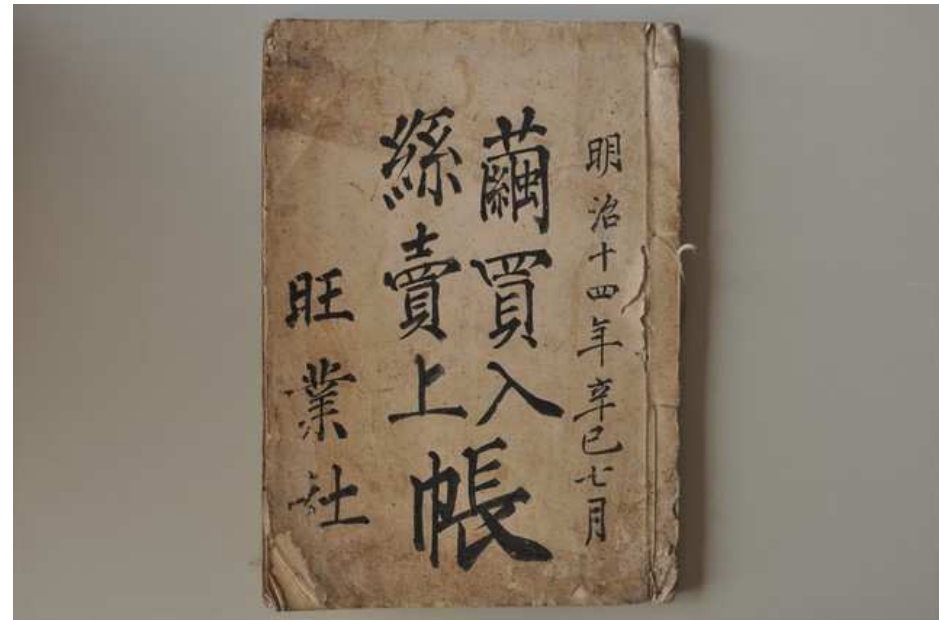 明治十四年辛巳七月
繭買入
絲賣上
帳
旺業社